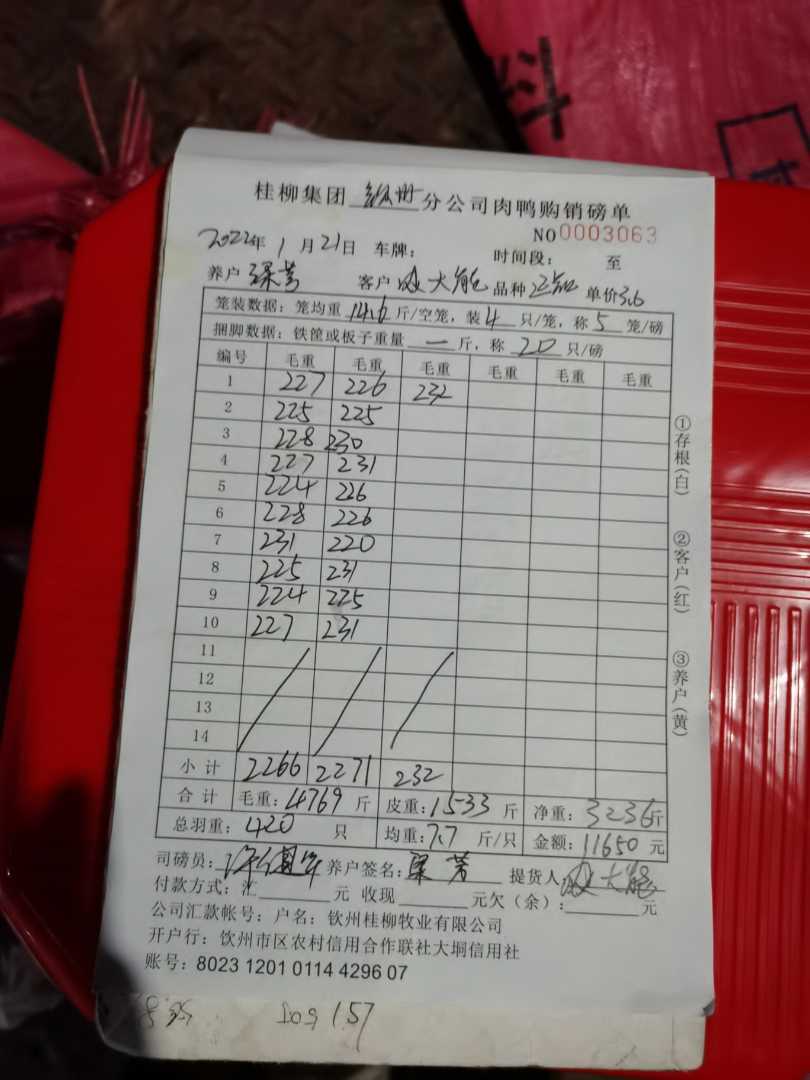 桂柳集团 钦州 分公司肉鸭购销磅单
NO 0003063
2022年 1 月 21日 车牌： 时间段： 至
养户 梁芳 客户 大能 品种 单价3.6
笼装数据：笼均重 14.6 斤/空笼，装 4 只/笼，称 5 笼/磅
捆脚数据：铁筐或板子重量 一 斤，称 20 只/磅
编号 毛重 毛重 毛重 毛重 毛重 毛重
1 227 226 232
2 225 225
3 228 230
4 227 231
5 224 226
6 228 226
7 231 220
8 225 231
9 224 225
10 227 231
11
12
13
14
小计 2266 2271 232
合计 毛重：4769 斤 皮重：1533 斤 净重：3236斤
总羽重：420 只 均重：7.7 斤/只 金额：11650 元
司磅员： 养户签名：梁芳 提货人 大能
付款方式：汇 元 收现 元欠（余）： 元
公司汇款帐号：户名：钦州桂柳牧业有限公司
开户行：饮州市区农村信用合作联社大垌信用社
账号：8023 1201 0114 4296 07
①存根（白）
②客户（红）
③养户（黄）
157